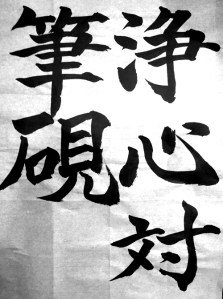 浄心対
筆硯